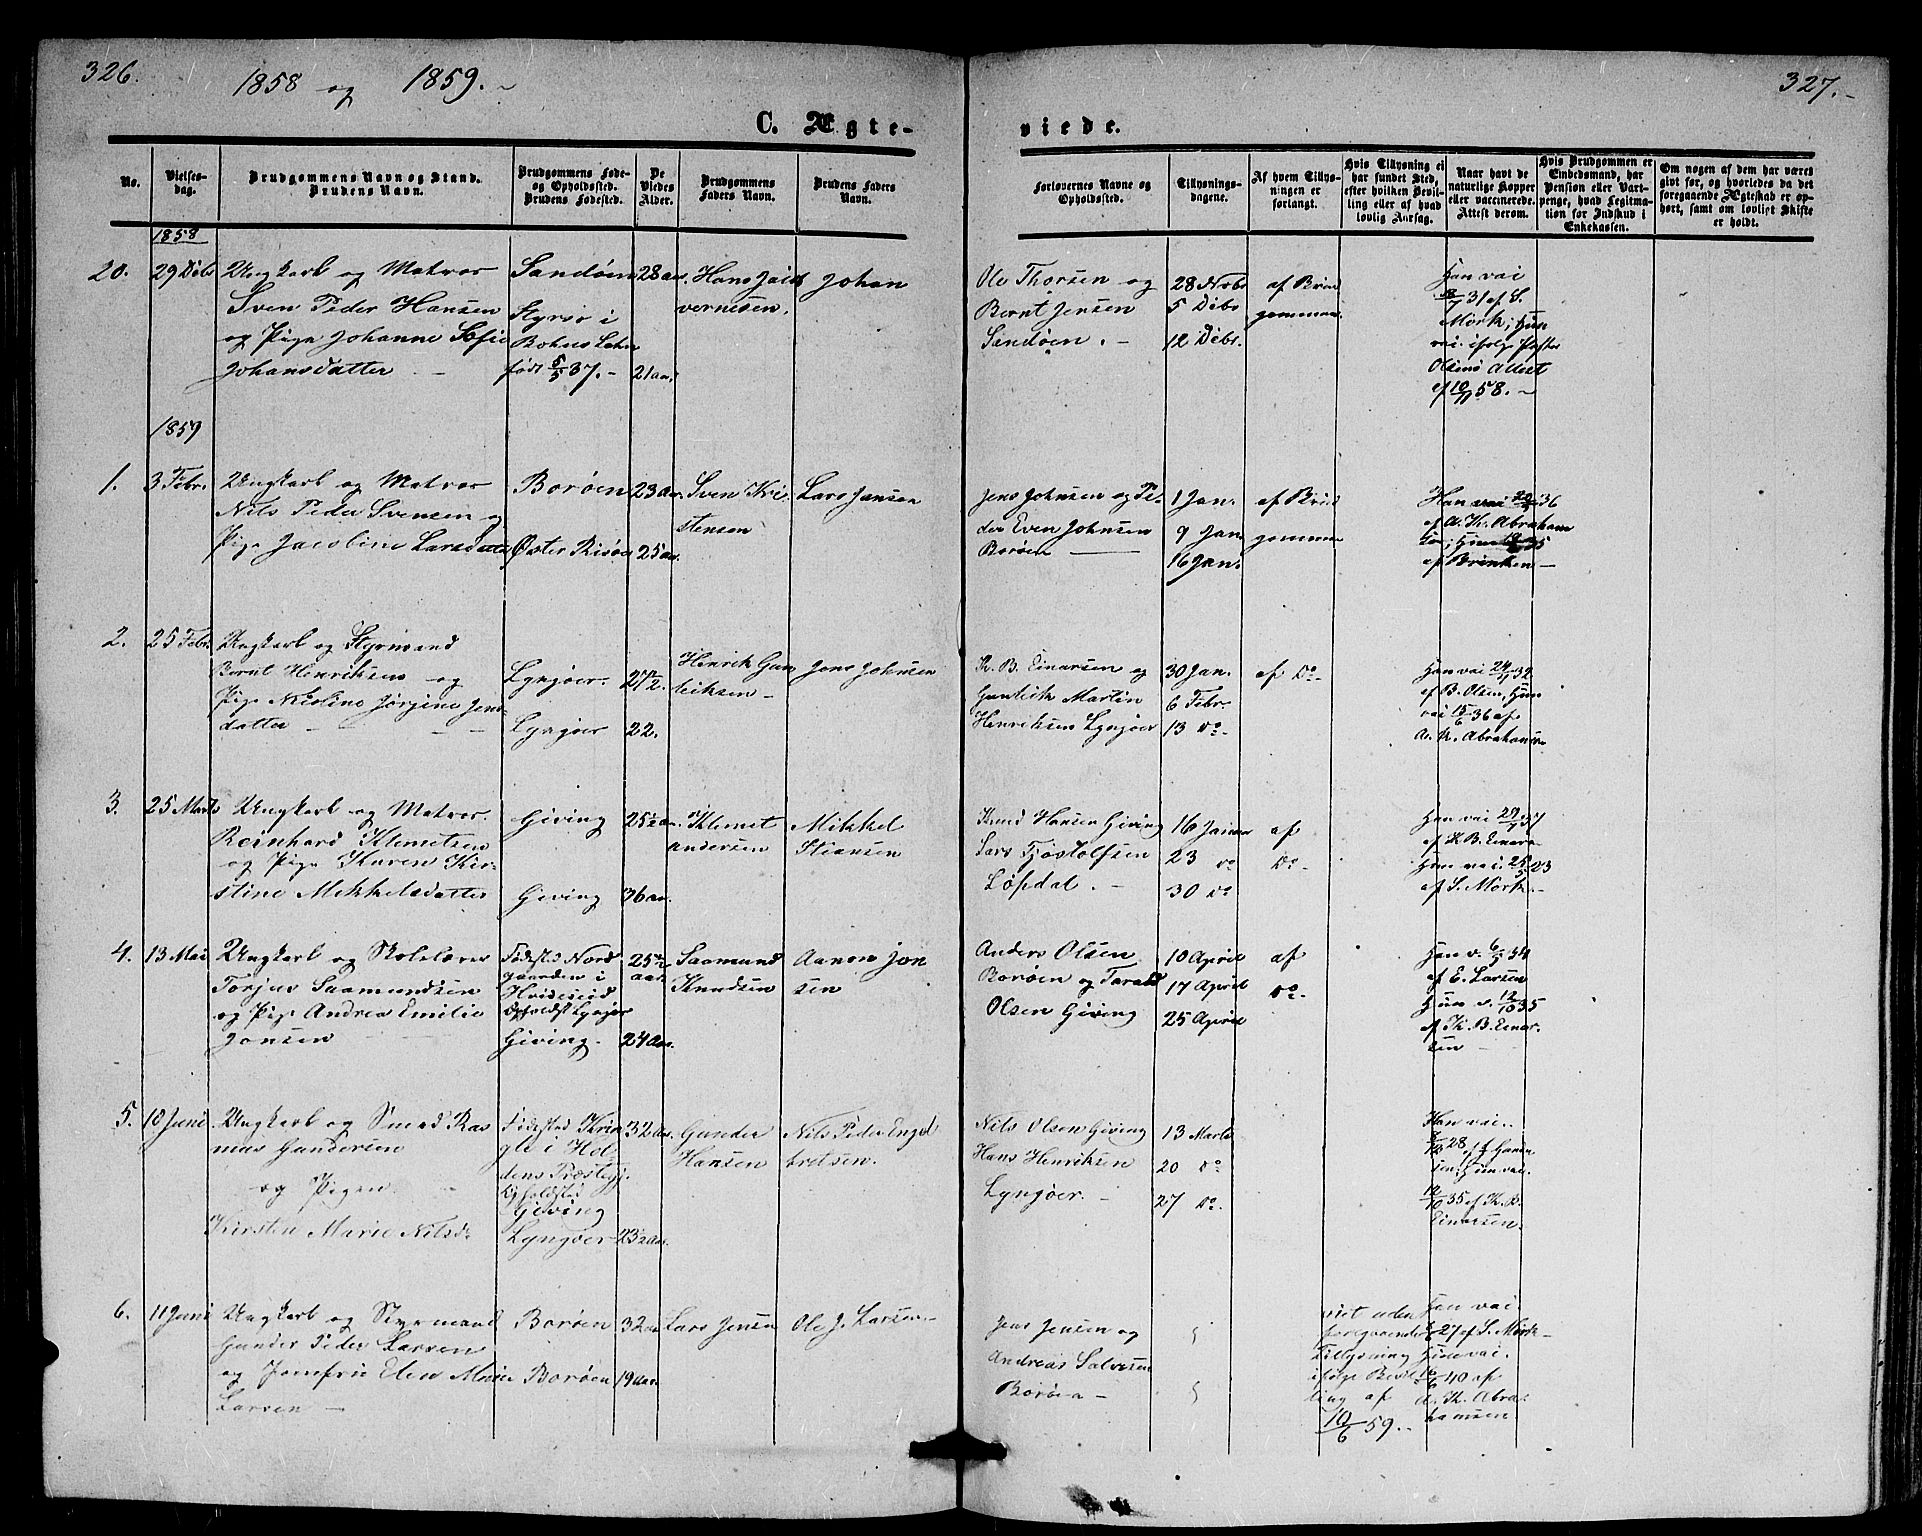 326.
1858 og 1859.
327.
C. Ægte-
viede.
No.
Vielses-
dag.
Brudgommens Navn og Stand.
Brudens Navn.
Brudgommens Føde-
og Opholdssted.
Brudens Fødested.
De
Viedes
Alder.
Brudgommens
Faders Navn.
Brudens Faders
Navn.
Forlovernes Navne og
Opholdssted.
Tillysnings-
dagene.
Af hvem Tillys-
ningen er
forlangt.
Hvis Tillysning ei
har fundet Sted,
efter hvilken Bevil-
ling eller af hvad
lovlig Aarsag.
Naar havt de
naturlige Kopper
eller vaccinerede.
Attest derom.
Hvis Brudgommen er
Embedsmand, har
Pension eller Vart-
penge, hvad Legitima-
tion for Indskud i
Enkekassen.
Om nogen af dem har været
givt før, og hvorledes da det
foregaaende Ægteskab er op-
hørt, samt om lovligt Skifte
er holdt.
1858
20.
29 Dcbr
Ungkarl og Matros
Sven Peder Hansen
og Pige Johanne Sofie
Johansdatter
Sandøen
Styrsø i
Bohus Lehn
født 5/5 37.
28 aar.
21 aar.
Hans
Johan
Ole Thorsen og
Bernt Jensen
Sandøen.
28 Novbr
5 Dcbr
12 Dcbr.
af Brud
gommen.
Han vac
31 af S.
Mørk; Hun
vac. ifølge Pastor
Attest
af 10/11 58.
1859
1.
3 Febr.
Ungkarl og Matros
Nils Peder Svensen og
Pige Jacobine Larsdatter
Borøen
Øster Risøer
23 aar.
25 aar.
Sven Kri
stensen
Lars Jansen
Jens Johnsen og Pe-
der Even Johnsen
Borøen
1 Jan.
9 Jan.
16 Jan.
af Brud
gommen
Han vac 36
af A. K. Abraham
sen; Hun 35
af Brinken
2.
25 Febr.
Ungkarl og Styrmand
Bernt Henriksen og
Pige Nicoline Jørgine Jens-
datter
Lyngøer.
Lyngøer
27 1/2.
22.
Henrik Gun
leiksen
Jens Johnsen
K. B. Einarsen og
Gunleik Martin
Henriksen Lyngøer
30 Jan.
6 Febr.
13 Do.
af Do.
Han vac 24/11 32
af B. Olsen, Hun
vac 15/6 36 af
A. K. Abrahamsen
3.
25 Marts
Ungkarl og Matros
Reinhard Klemetsen
og Pige Karen Kir-
stine Mikkelsdatter
Giving
Giving
25 1/2 aar.
36 aar.
Klemet
Andersen
Mikkel
Stiansen
Knud Hansen Giving
Lars Tjøstolfsen
Løvdal.
16 Januar
23 Do
30 Do
af
Do.
Han vac 37
af K. B. Einars-
Hun vac. 23
af S. Mørk.
4.
13 Mai
Ungkarl og Skolelærer
Torjus Saamundsen
og Pige Andrea Emilie
Jonsen
Fødested Nord
gaarden i
Hvideseid
Opholdst Lyngør
Giving.
25 1/2
aar.
24 aar.
Saamund
Knudsen
Aanon Jon
sen
Anders Olsen
Borøen og Tarald
Olsen Giving
10 April
17 April
25 April
af
Do.
Han v. 6/5 34
af E. Larsen
Hun v. 12/10 35
af K. B. Einar-
sen
5.
10 Juni
Ungkarl og Smed Ras
mus Gundersen
og Pigen
Kirsten Marie Nilsd.
Fødested Krin
gle i Hol-
dens Præstegj.
Opholdsted
Giving
Lyngøer
32 aar.
23 1/2 aar.
Gunder
Hansen
Nils Peder Engel
bretsen.
Nils Olsen Giving
Hans Henriksen
Lyngøer.
13 Marts
20 Do
27 Do.
Han vac.
28 af Hans
sen; Hun vac.
12/10 35 af K. B.
Einarsen.
6.
11 Juni
Ungkarl og Styrmand
Gunder Peder Larsen
og Jomfru Elen Marie
Larsen
Borøen
Borøen
32 aar
19 aar.
Lars Jensen
Ole J. Larsen
Jens Jensen og
Andreas Salvesen
Borøen
viet uden
foregaaende
Tillysning
ifølge Bevil
ling af
10/6 59.
Han vac
27 af S. Mørk
Hun vac.
40 af
A. K. Abra-
hamsen